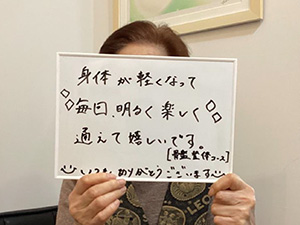 身体が軽くなって
毎回、明るく楽しく
通えて嬉しいです。
[骨盤整体コース]
いつもありがとうございます